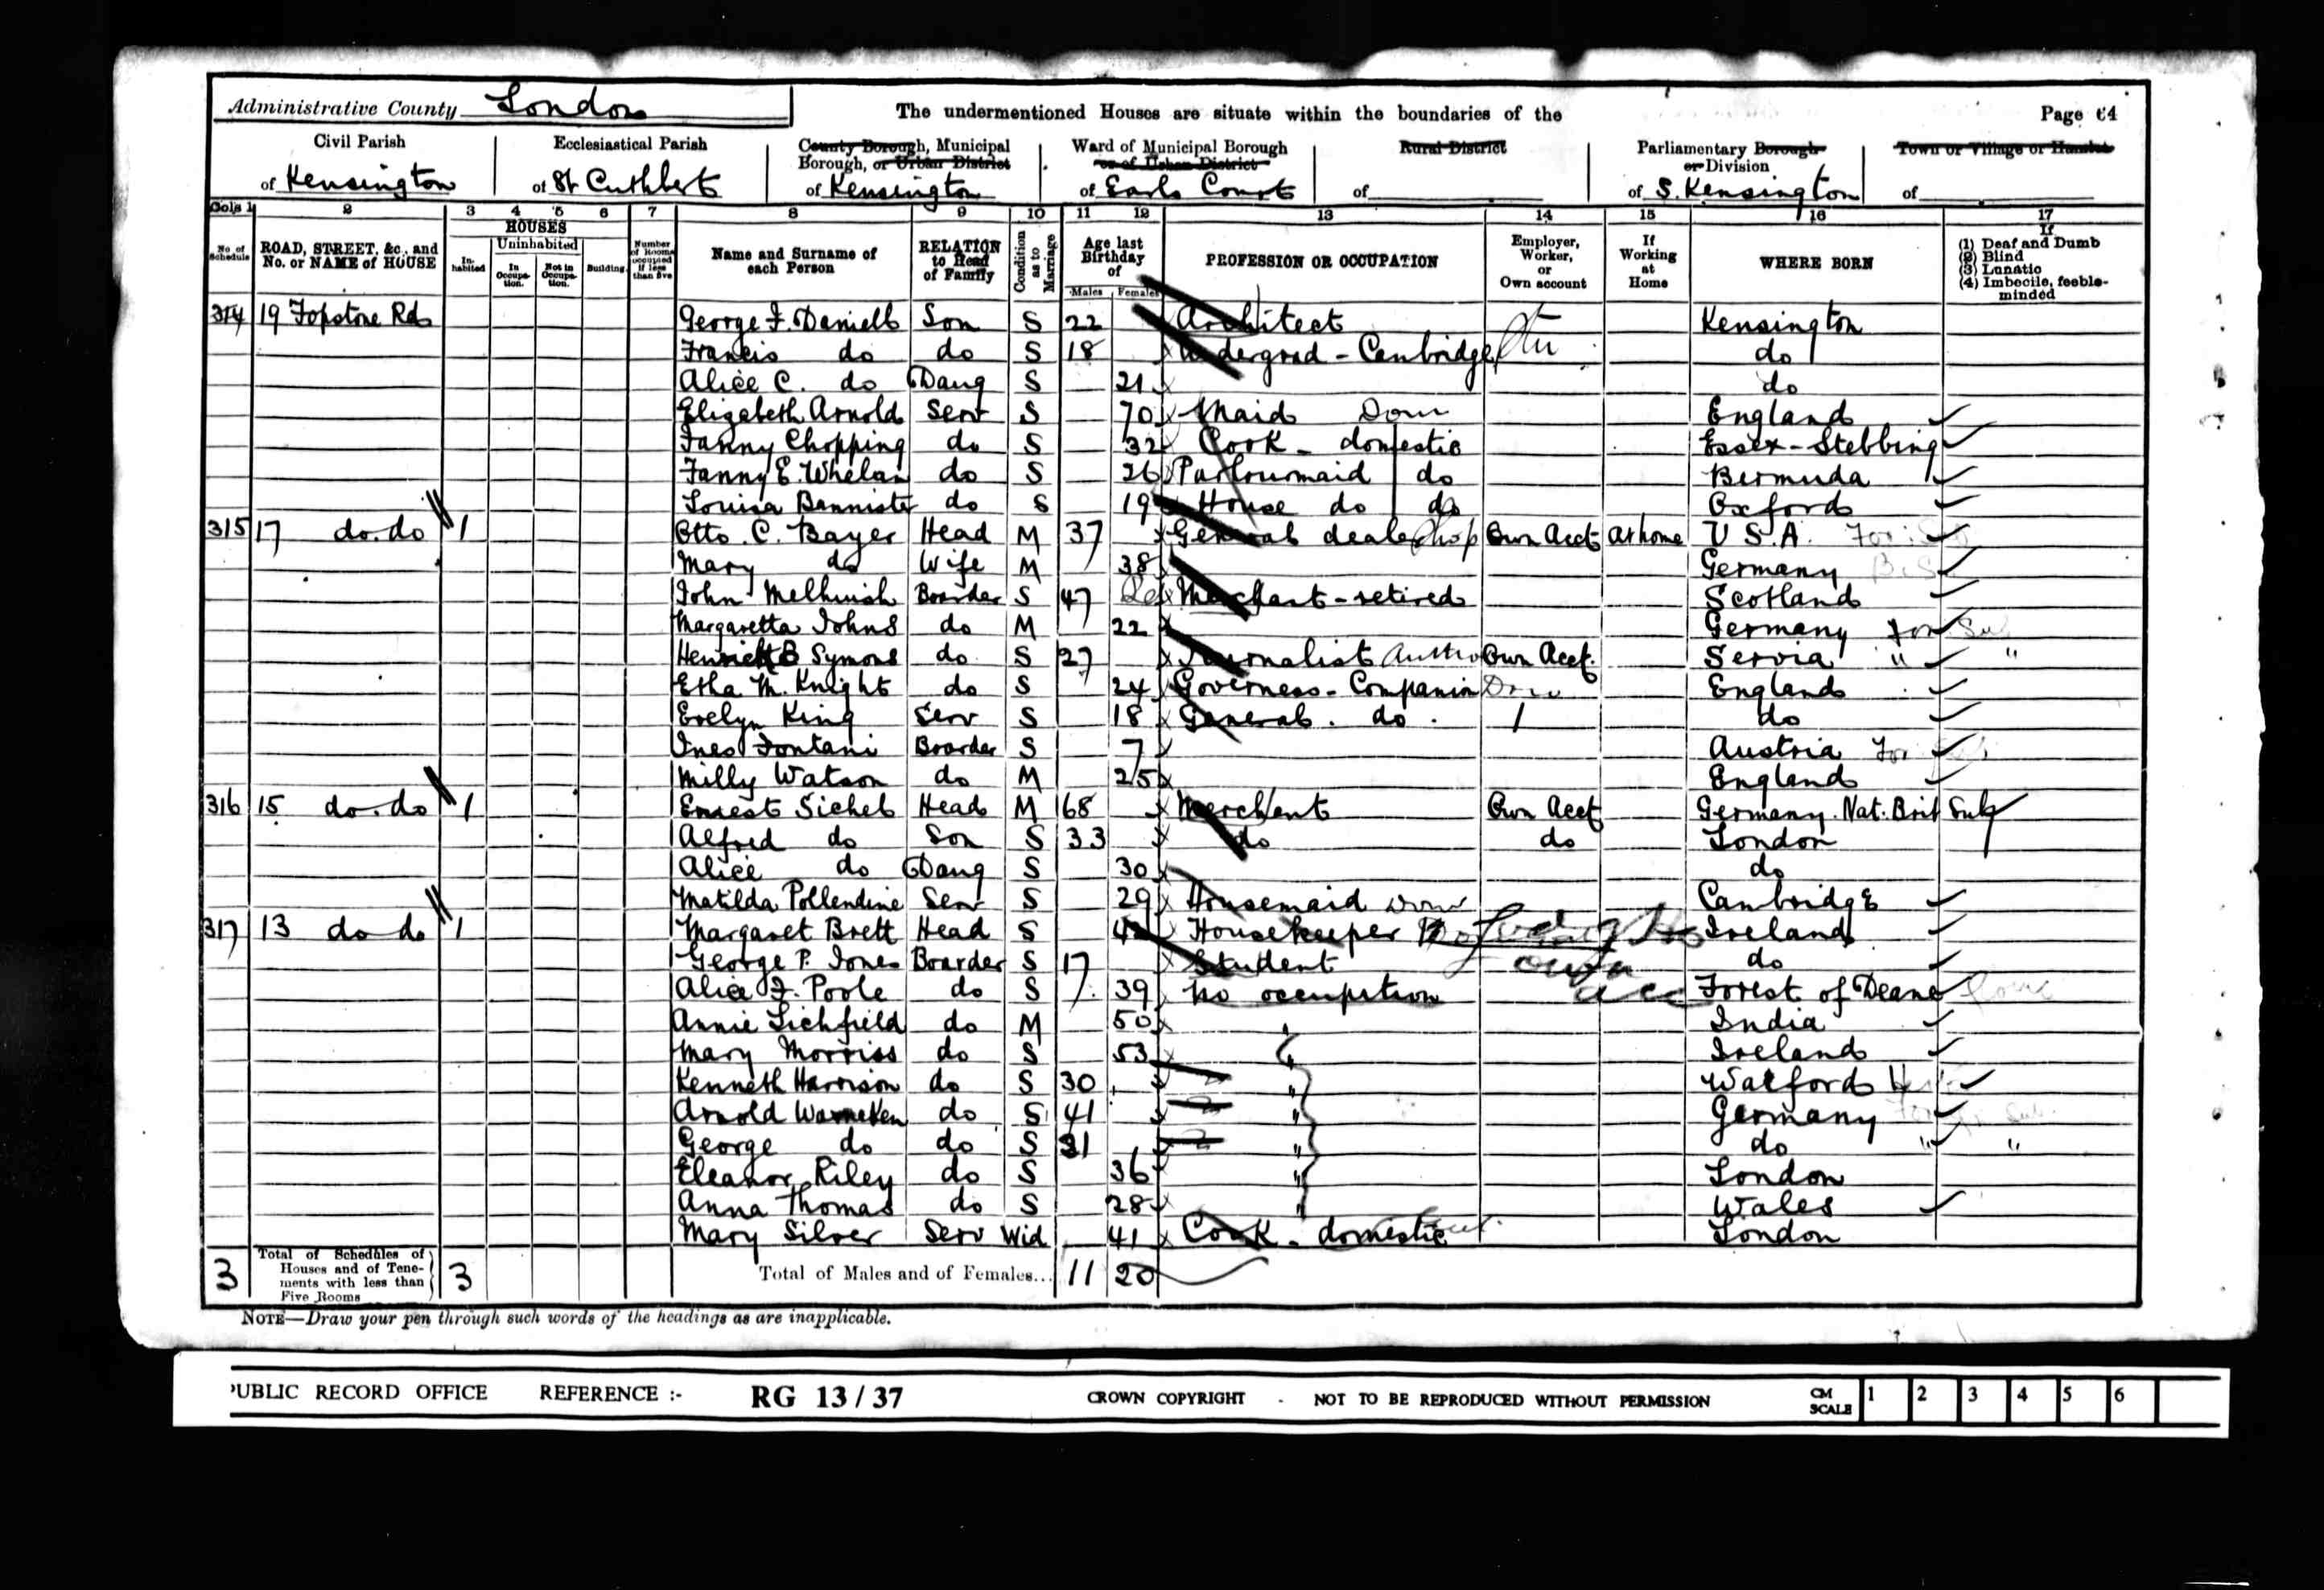 Administrative County London The undermentioned Houses are situate within the boundaries of the Page 64
Civil Parish Ecclesiastical Parish County Borough, Municipal Borough, or Urban District Ward of Municipal Borough or of Urban District Rural District Parliamentary Borough or Division Town or Village or Hamlet
of Kensington of St Cuthberts of Kensington of Earls Court of of S. Kensington of
Cols 1 2 3 4 5 6 7 8 9 10 11 12 13 14 15 16 17
No. of Schedule ROAD, STREET, &c., and No. or NAME of HOUSE HOUSES Inhabited Uninhabited In Occupation. Not in Occupation. Building. Number of Rooms occupied if less than five Name and Surname of each Person RELATION to Head of Family Condition as to Marriage Age last Birthday of Males Females PROFESSION OR OCCUPATION Employer, Worker, or Own account If Working at Home WHERE BORN If (1) Deaf and Dumb (2) Blind (3) Lunatic (4) Imbecile, feeble-minded
314 19 Topstone Rd George F. Daniell Son S 22 Architect Kensington
Francis do do S 18 Undergrad - Cambridge do
Alice C. do Daug S 21 do
Elizabeth Arnold Serv S 70 Maid Dom England
Fanny Chopping do S 32 Cook - domestic Essex - Stebbing
Fanny E. Whelan do S 26 Parlourmaid do Bermuda
Louisa Bannister do S 19 House do do Oxford
315 17 do. do 1 Otto. C. Bayer Head M 37 General dealer Shop Own Acct At home U.S.A.
Mary do Wife M 38 Germany
John Melhuish Boarder S 47 Merchant - retired Scotland
Margaretta Johns do M 22 Germany For Sub
B Symons do S 27 Journalist Author Own Acct. Servia " "
Etha M. Knight do S 24 Governess - Companion Dom England
Evelyn King Serv S 18 General. do. do
Ines Fontani Boarder S 7 Austria
Milly Watson do M 25 England
316 15 do. do 1 Ernest Sichel Head M 68 Merchant Own Acct Germany. Nat. Brit Sub
Alfred do Son S 33 do do London
Alice do Daug S 30 do
Matilda Pollendine Serv S 29 Housemaid Dom Cambridge
317 13 do do 1 Margaret Brett Head S Housekeeper Ireland
George P. Jones Boarder S 17 Student do
Alice F. Poole do S 39 No occupation Forest of Deane
Annie Lichfield do M 50 " India
Mary Morriss do S 53 " Ireland
Kenneth Harrison do S 30 " Watford
Arnold Warneken do S 41 " Germany
George do do S 31 " do " "
Eleanor Riley do S 36 " London
Anna Thomas do S 28 " Wales
Mary Silver Serv Wid 41 Cook - domestic London
3 Total of Schedules of Houses and of Tenements with less than Five Rooms 3 Total of Males and of Females... 11 20
NOTE—Draw your pen through such words of the headings as are inapplicable.
PUBLIC RECORD OFFICE REFERENCE :- RG 13/37 CROWN COPYRIGHT - NOT TO BE REPRODUCED WITHOUT PERMISSION CM SCALE 1 2 3 4 5 6